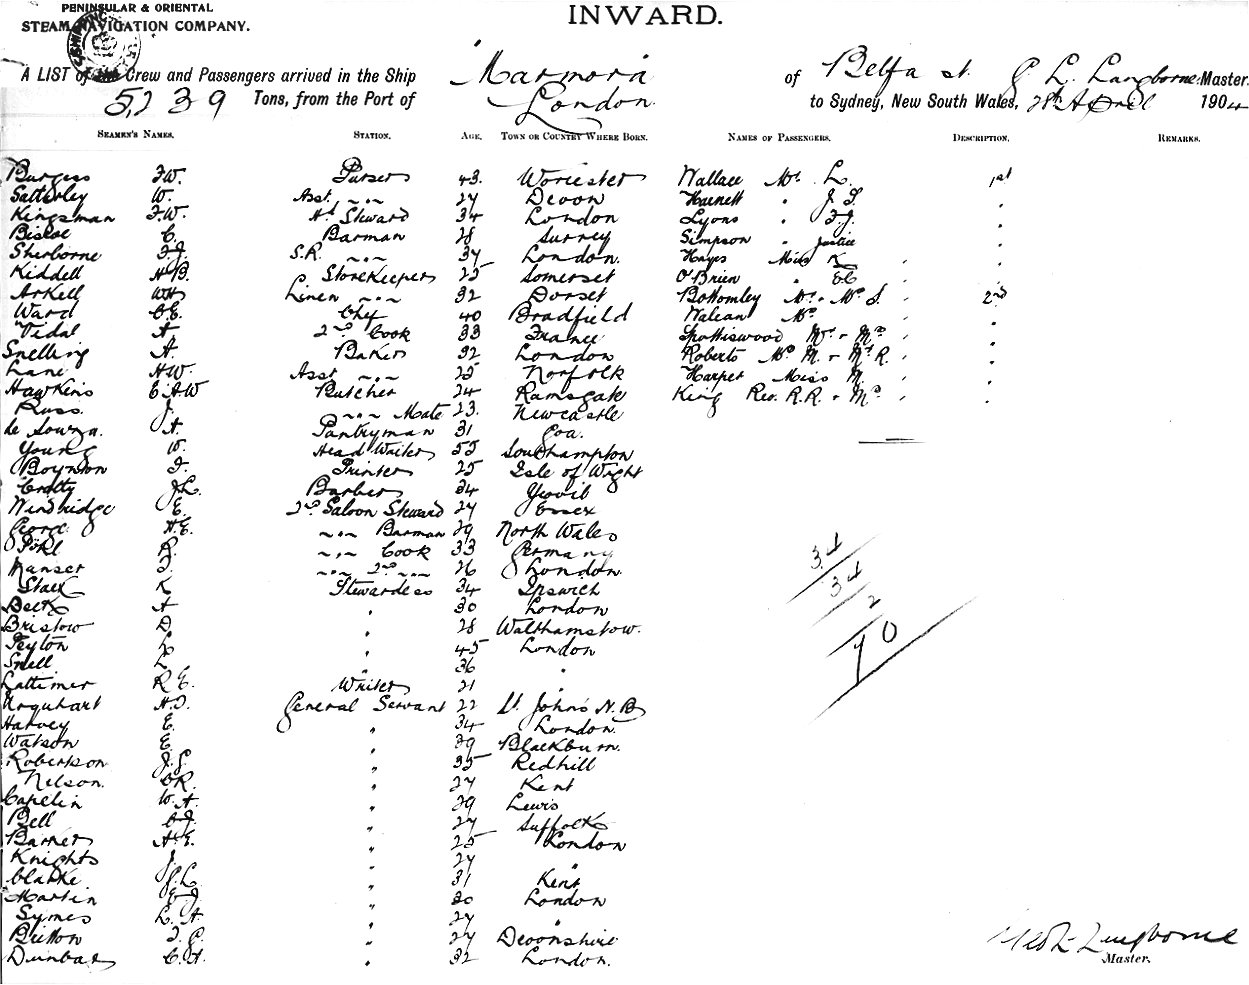 PENINSULAR & ORIENTAL
STEAM NAVIGATION COMPANY.
INWARD.
A LIST of the Crew and Passengers arrived in the Ship "Marmora" of Belfast. G L. Langborne Master.
5,239 Tons, from the Port of London. to Sydney, New South Wales, 28th April 1904
SEAMEN'S NAMES. STATION. AGE. TOWN OR COUNTRY WHERE BORN. NAMES OF PASSENGERS. DESCRIPTION. REMARKS.
Burgess F.W. Purser 43. Worcester Wallace Mr L. 1st
Satterley W. Asst. " 27 Devon Harnett " J F. "
Kingsman F.W. Hd Steward 34 London Lyons " F.J. "
Biscoe C. Barman 28 Surrey Simpson " Justice "
Sherborne F.J. S.R. " 37 London. Hayes Miss K "
Kiddell H B. Storekeeper 25 Somerset O'Brien " "
Arkell WH Linen " 32 Dorset Bottomley Mr & Mrs S. 2nd
Ward C E. Chf 40 Bradfield Mr "
Vidal A 2nd Cook 33 France Spottiswood Mr & Mrs "
Snelling A. Baker 32 London Roberts Mr M. & Mr R. "
Lane H.W. Asst " 25 Norfolk Harper Miss M. "
Hawkins E A W Butcher 24 Ramsgate King Rev. R.R. & Mrs "
Russ. J. " Mate 23. Newcastle
de Souza. A. Pantryman 31 Goa.
Young W. Head Waiter 55 Southampton
Boynton F. Printer 25 Isle of Wight
Crotty J.L. Barber 34 Yeovil
Windridge E. 2nd Saloon Steward 27 Essex
George. H.E. " Barman 29 North Wales
Pohl R. " Cook 33 Germany
Manser F. " 2nd " 26 London
Stack K Stewardess 34 Ipswich
Beck A " 30 London
Bristow D. " 28 Walthamstow.
Peyton L. " 45 London
Snell L. " 36 "
Lattimer R E. Writer 21 "
Urquhart H.F. General Servant 22 St. John's N.B.
Harvey E. " 34 London.
Watson E. " 39 Blackburn.
Robertson J.G. " 35 Redhill
Nelson. C R. " 27 Kent
Capelin W.A. " 29 Lewis
Bell C J. " 27 Suffolk
Barker A.E. " 25 London
Knights J. " 27 "
Clarke. J.L. " 31 Kent
Martin E J. " 30 London
Symes L. A. " 27 "
Britton F. C. " 27 Devonshire
Dunbar C.H. " 32 London.
34
34
2
70
Langborne
Master.